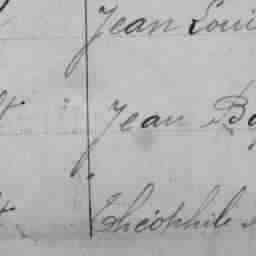 Jean Loui
Jean Ba
Théophile